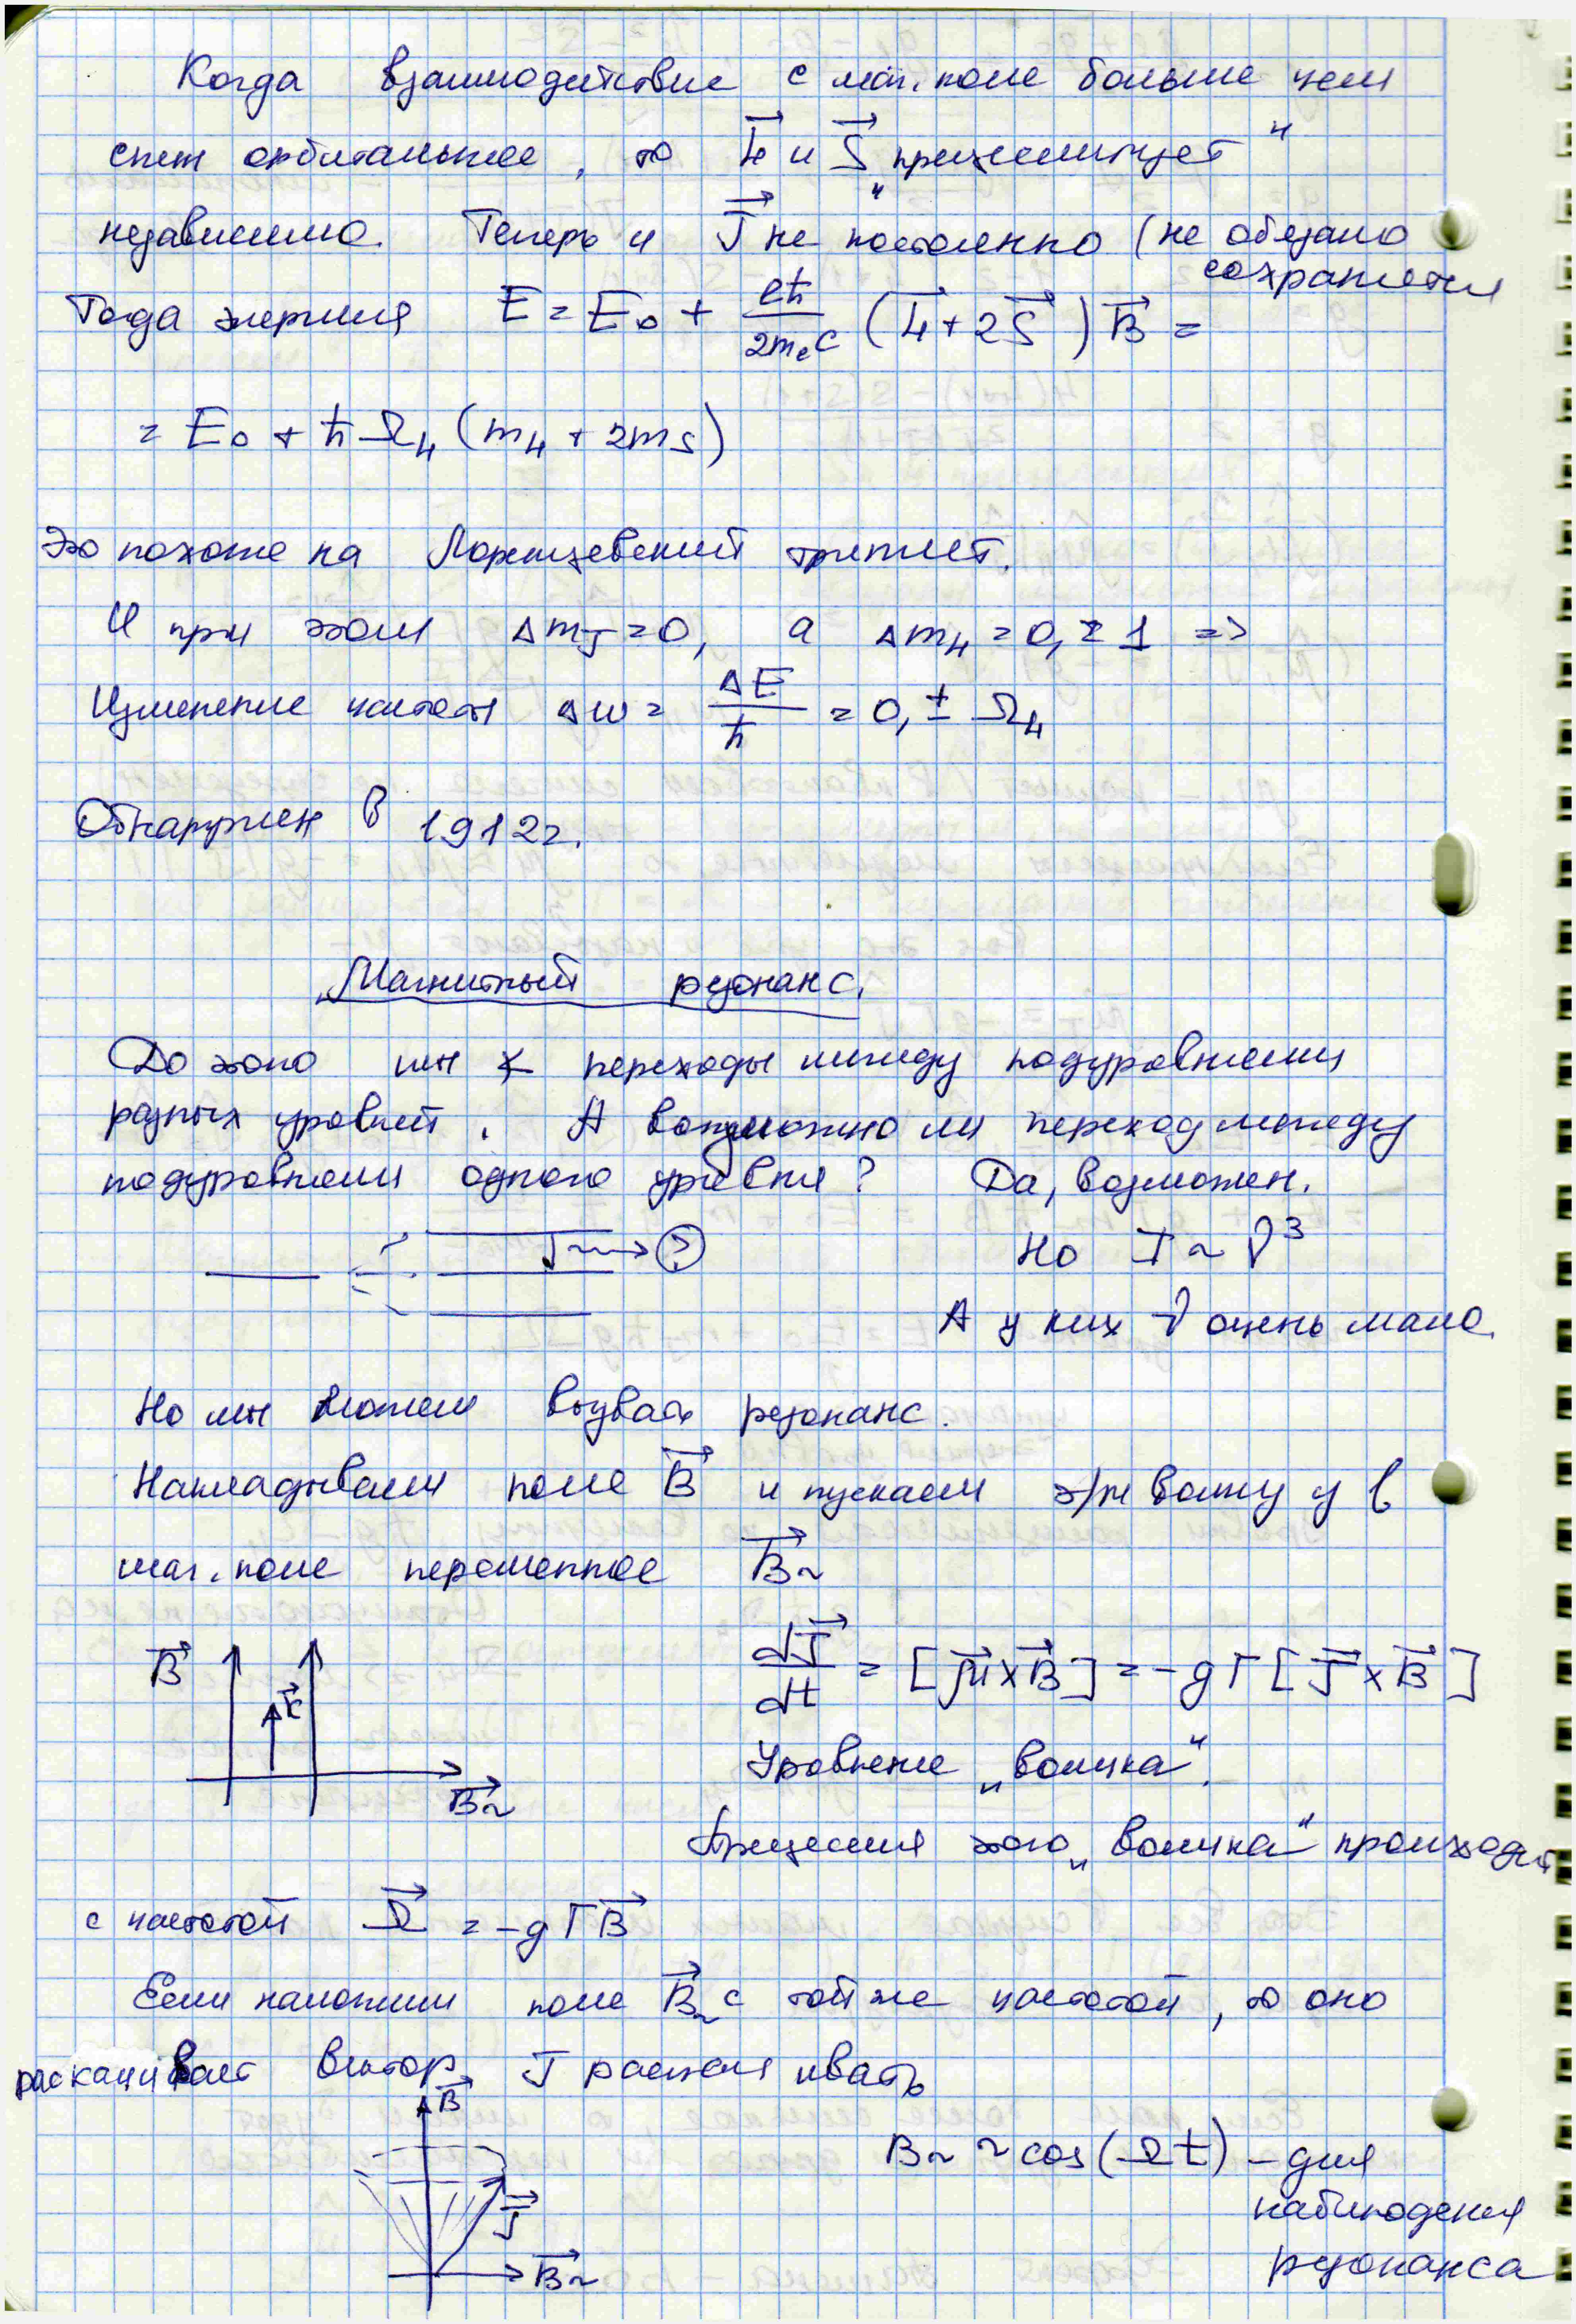 Когда взаимодействие с маг. поле больше чем
спин орбитальное, то L⃗ и S⃗ „прецессирует"
независимо. Теперь и J⃗ не постоянно (не обязано
сохраняться
Тогда энергия E = E₀ + eħ/2mₑc (L⃗ + 2S⃗) B⃗ =
= E₀ + ħΩ_L (m_L + 2m_S)
Это похоже на Лоренцевский триплет.
И при этом Δm_J = 0, а Δm_L = 0, ± 1 =>
Изменение частоты Δω = ΔE/ħ = 0, ± Ω_L
Обнаружен в 1912г.
Магнитный резонанс.
До этого мы переходы между подуровнями
разных уровней. А возможно ли переход между
подуровнями одного уровня? Да, возможен.
Но I ~ ν³
?
А у них ν очень мало.
Но мы можем вызвать резонанс.
Накладываем поле B⃗ и пускаем э/м волну у в
маг. поле переменное B⃗~
B⃗ k⃗ B⃗~
dJ⃗/dt = [μ⃗ × B⃗] = -gГ [J⃗ × B⃗]
Уровнение „волчка".
Прецессия этого „волчка" происходит
с частотой Ω⃗ = -gГB⃗
Если наложим поле B⃗~ с той же частотой, то оно
раскачивает вектор J раскачивать
B⃗ J⃗ B⃗~
B~ ~ cos(Ωt) - для
наблюдения
резонанса